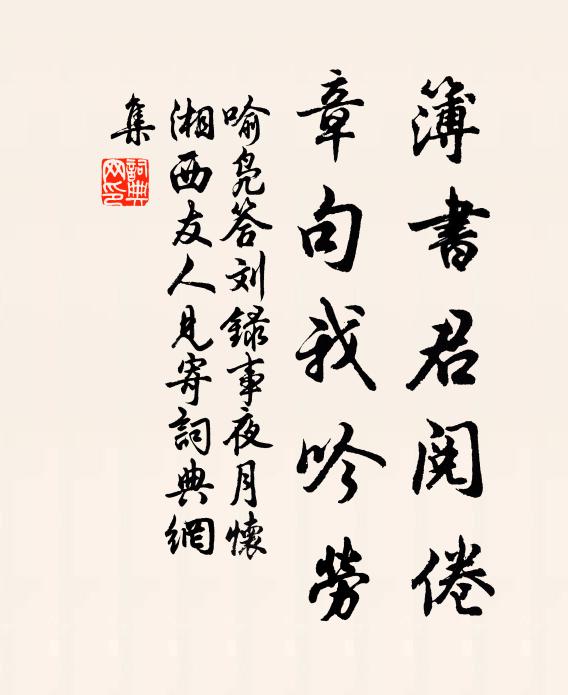 簿書君閱倦
章句我吟勞
喻鳧答刘錄事夜月懷
湘西友人見寄詞典網
集
詞典
网印